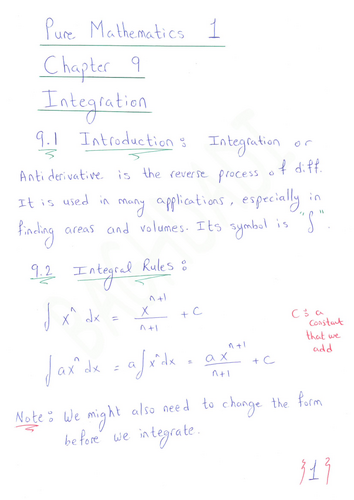 Pure Mathematics 1
Chapter 9
Integration
9.1 Introduction: Integration or
Antiderivative is the reverse process of diff.
It is used in many applications, especially in
finding areas and volumes. Its symbol is "∫".
9.2 Integral Rules:
∫ xⁿ dx = xⁿ⁺¹/n+1 + C
C is a
constant
that we
add
∫ axⁿ dx = a∫xⁿdx = axⁿ⁺¹/n+1 + C
Note: We might also need to change the form
before we integrate.
}1}